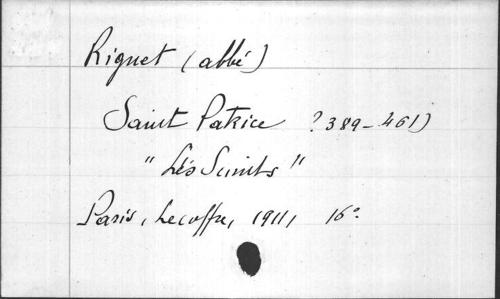 Riguet (abbé)
Saint Patrice ? 389-461)
" Les Saints "
Paris, Lecoffre, 1911, 16°